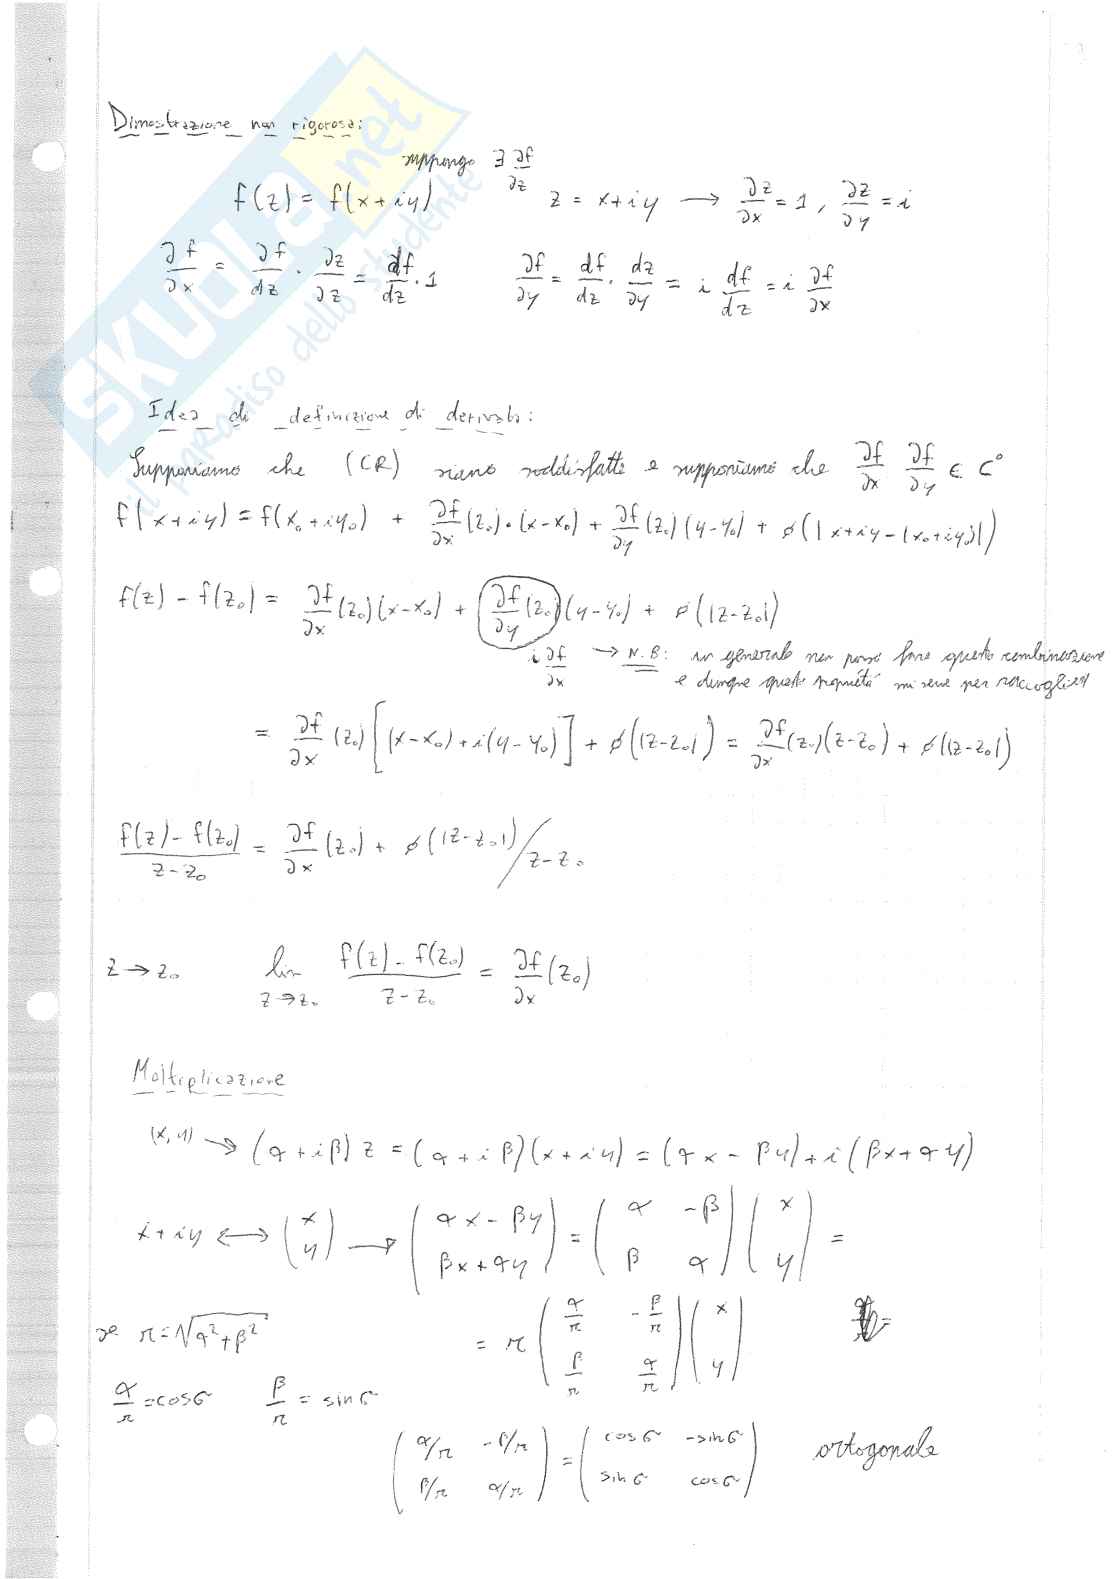 Dimostrazione non rigorosa:
suppongo ∃ ∂f/∂z
f(z) = f(x+iy)   z = x+iy → ∂z/∂x = 1, ∂z/∂y = i
∂f/∂x = ∂f/dz · ∂z/∂z = df/dz · 1   ∂f/∂y = df/dz · dz/∂y = i df/dz = i ∂f/∂x
SKUOLA.net
il paradiso dello studente
Idea di definizione di derivata:
Supponiamo che (CR) siano soddisfatte e supponiamo che ∂f/∂x ∂f/∂y ∈ C°
f(x+iy) = f(x₀+iy₀) + ∂f/∂x (z₀)·(x-x₀) + ∂f/∂y (z₀)(y-y₀) + ϕ(|x+iy-(x₀+iy₀)|)
f(z) - f(z₀) = ∂f/∂x (z₀)(x-x₀) + ∂f/∂y (z₀)(y-y₀) + ϕ(|z-z₀|)
i ∂f/∂x → N.B: in generale non posso fare questa combinazione
e dunque questa proprietà mi serve per raccogliere
= ∂f/∂x (z₀) [(x-x₀)+i(y-y₀)] + ϕ(|z-z₀|) = ∂f/∂x (z₀)(z-z₀) + ϕ(|z-z₀|)
f(z) - f(z₀) / z-z₀ = ∂f/∂x (z₀) + ϕ(|z-z₀|) / z-z₀
z→z₀   lim z→z₀ f(z) - f(z₀) / z-z₀ = ∂f/∂x (z₀)
Moltiplicazione
(x,y) → (α+iβ) z = (α+iβ)(x+iy) = (αx - βy)+i(βx+αy)
x+iy ↔ (x y) → (αx - βy   βx+αy) = (α -β   β α) (x y) =
se r = √α²+β²   = r (α/r -β/r   β/r α/r) (x y)
α/r = cosσ   β/r = sinσ
(α/r -β/r   β/r α/r) = (cosσ -sinσ   sinσ cosσ)   ortogonale